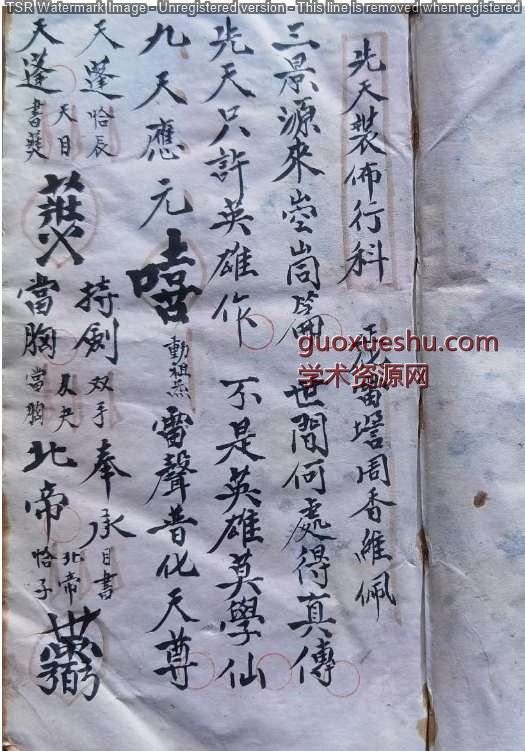 TSR Watermark Image - Unregistered version - This line is removed when registered
先天裝佈行科
雷壇周香維佩
三景源來崆峒篇 世間何處得真傳
先天只許英雄作 不是英雄莫學仙
九天應元嘻動祖炁雷聲普化天尊
天蓬恰辰 持劍双手奉承目書
天蓬書 天目 當胸當胸 北帝恰子 北帝
guoxueshu.com
学术资源网